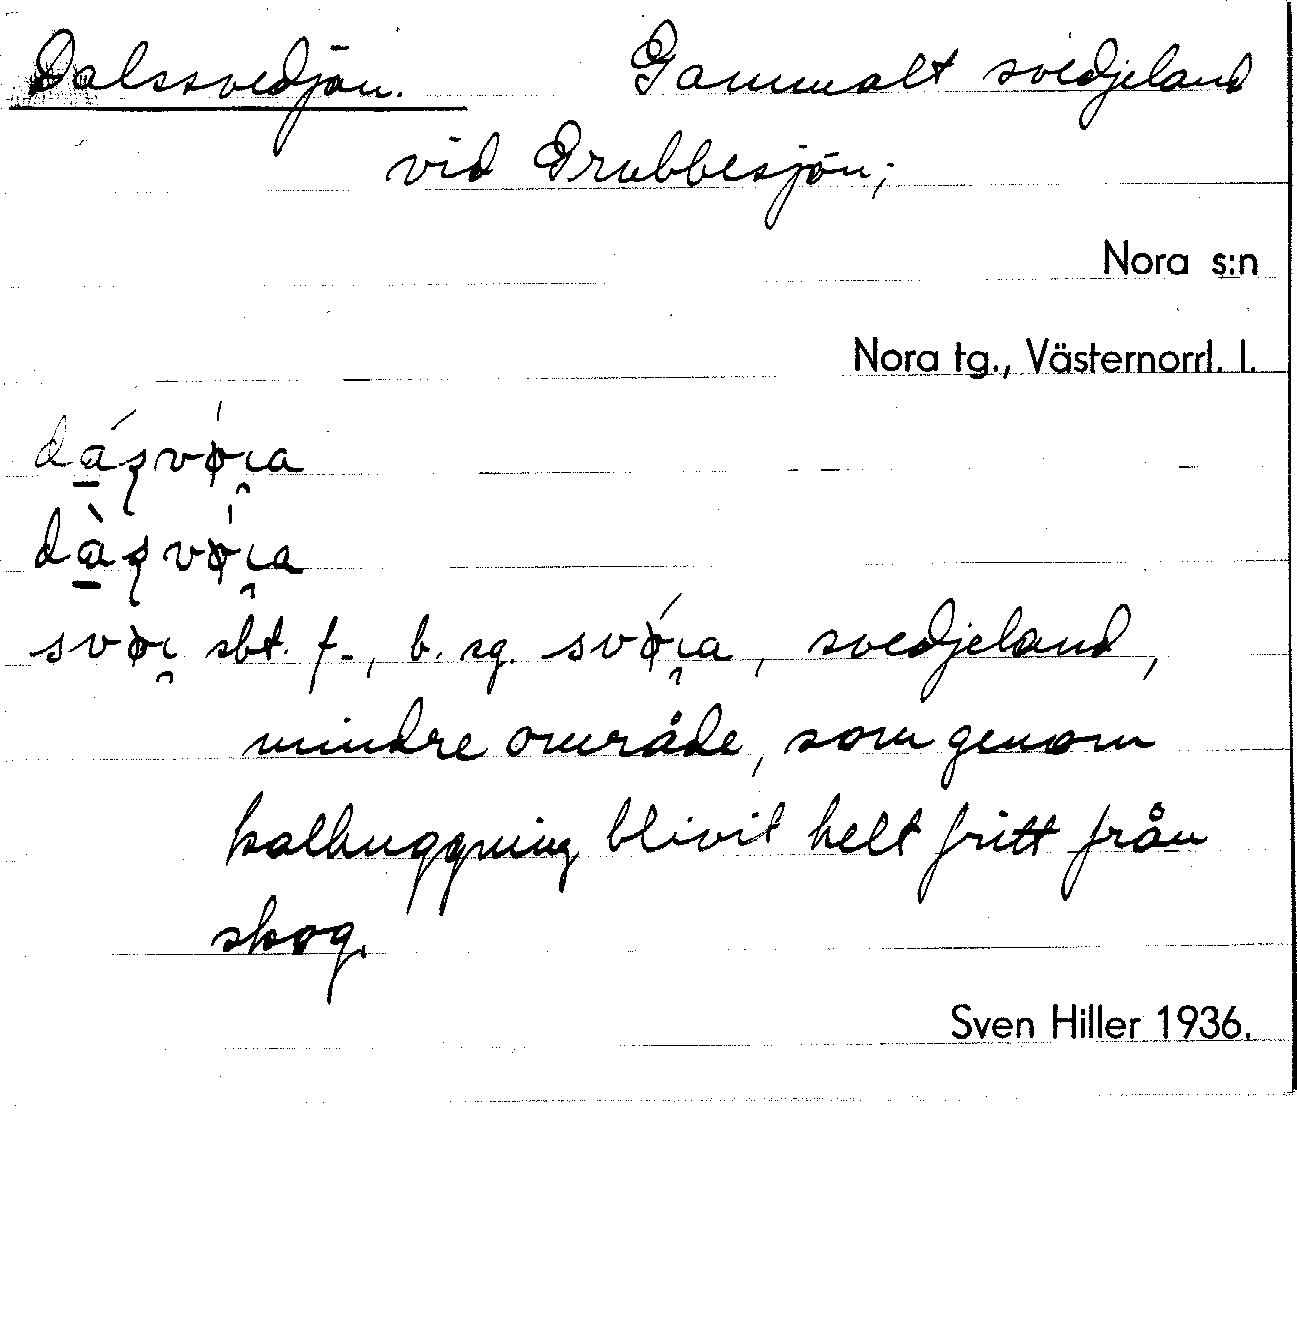 Dalssvedjön. Gammalt svedjeland
vid Grubbesjön;
Nora s:n
Nora tg., Västernorrl. l.
sbt. f., b. sg. svedjeland,
mindre område, som genom
kalhuggning blivit helt fritt från
skog.
Sven Hiller 1936.